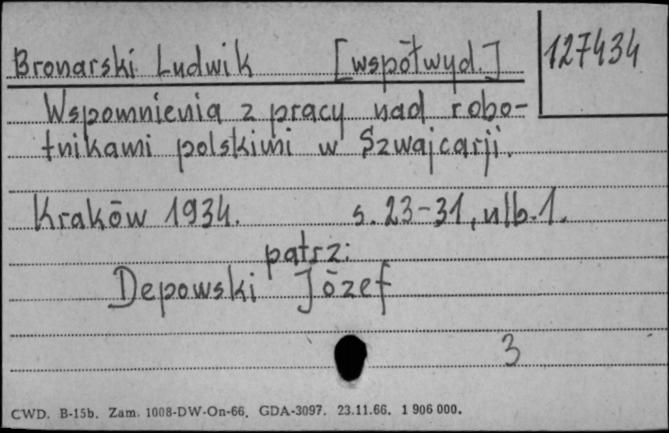 Bronarski Ludwik [współwyd.] 127434
Wspomnienia z pracy nad robo-
tnikami polskimi w Szwajcarji.
Kraków 1934. s. 23-31, nlb. 1.
patrz:
Depowski Józef
3
CWD. B-15b. Zam. 1008-DW-On-66. GDA-3097. 23.11.66. 1 906 000.